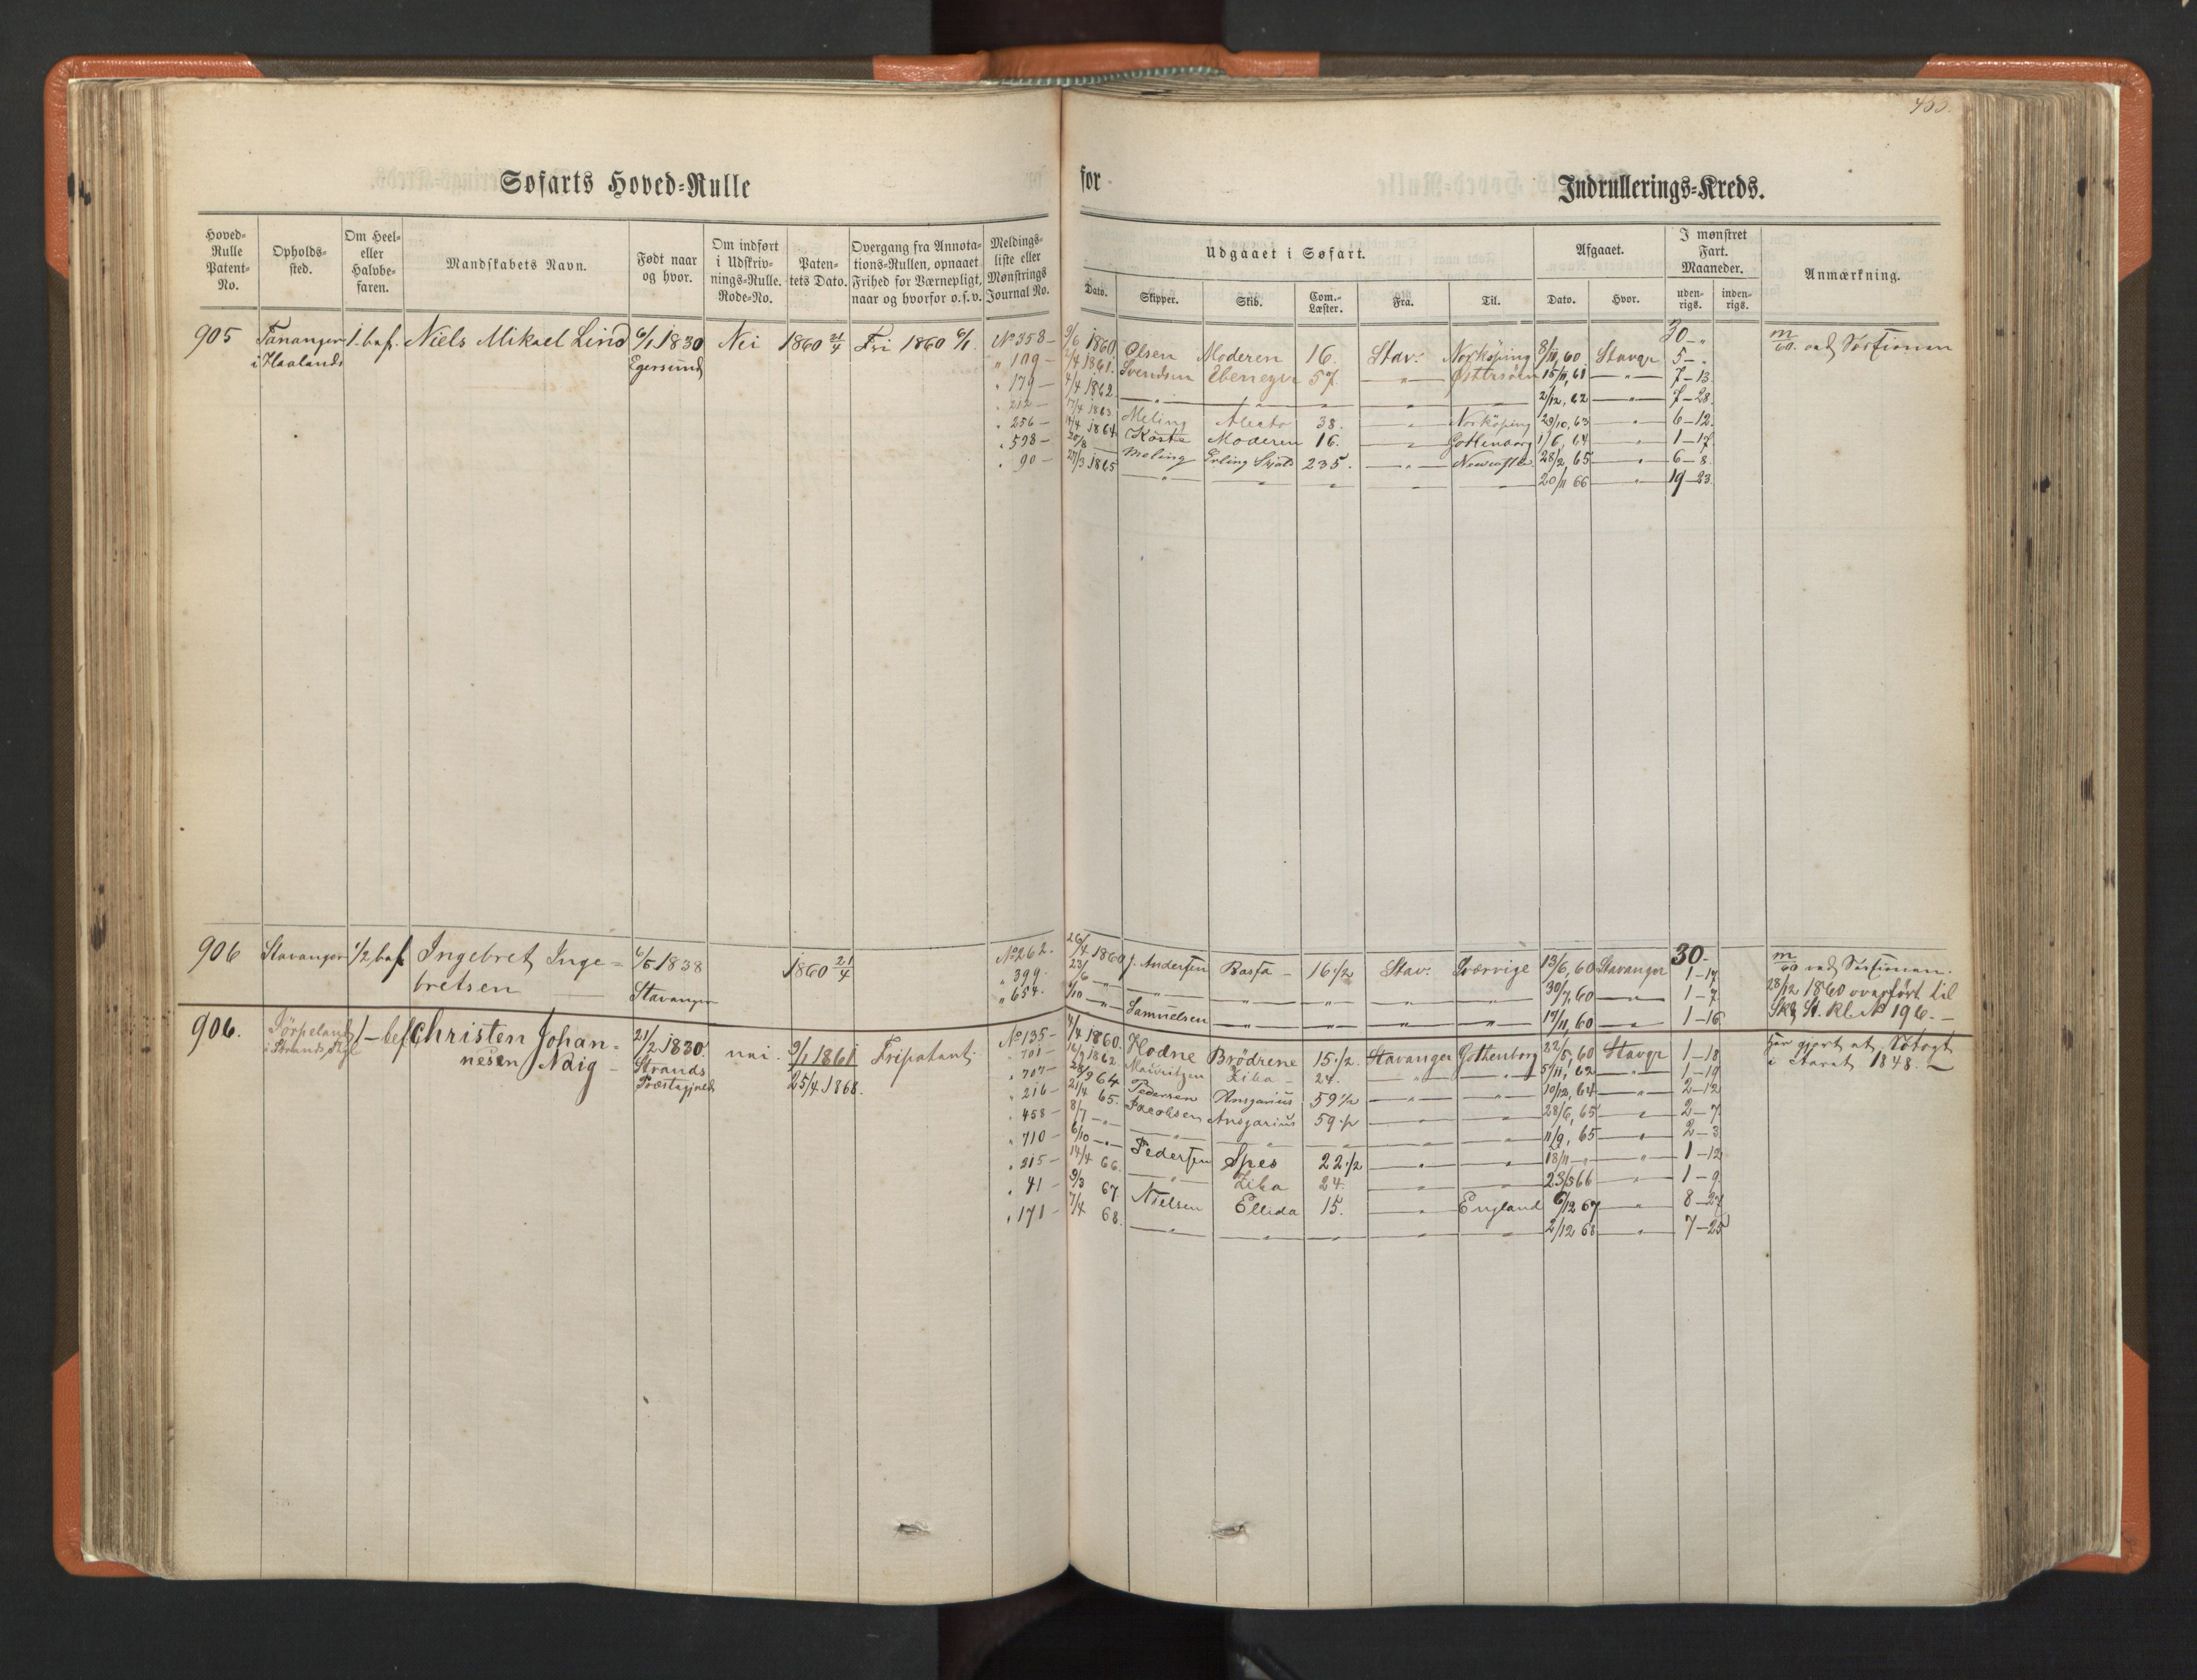 453.
Søfarts Hoved-Rulle for Indrullerings-Kreds.
Hoved-Rulle Patent-No.
Opholds-sted.
Om Heel- eller Halvbe-faren.
Mandskabets Navn.
Født naar og hvor.
Om indført i Udskriv-nings-Rulle. Rode-No.
Paten-tets Dato.
Overgang fra Annota-tions-Rullen, opnaaet Frihed for Værnepligt, naar og hvorfor o.s.v.
Meldings-liste eller Mønstrings Journal No.
Udgaaet i Søfart.
Dato. Skipper. Skib. Com.-Læster. Fra. Til.
Afgaaet.
Dato. Hvor.
I mønstret Fart. Maaneder.
uden-rigs. inden-rigs.
Anmærkning.
905 Tananger 1. bef. Niels Mikael Lind 6/1 1830 Nei 1860 21/4 Fri 1860 6/1. No 358 – 9/6 1860 Olsen Moderen 16. Stav: Norköping 8/11, 60 Stavgr 30 – „
i Haalands Egersund „ 109 – 2/4 1861. Svendsen Ebenezer 57. – „ – Østersöen 15/11, 61 – „ – 5 – „
„ 179 – 4/4 1862 – „ – – „ – – „ – – „ – – „ – 2/12, 62 – „ – 7 – 13
„ 212 – 17/4 1863 Meling Alecto 38. – „ – Norköping 29/10, 63 – „ – 7 – 28
„ 256 – 14/4 1864 Moderen 16. – „ – Gothenborg 1/6, 64 – „ – 6 – 12
„ 598 – 20/8 – Meling Erling Skjals 235. – „ – Newcastle 28/2, 65 – „ – 1 – 17
„ 90 – 27/3 1865 – „ – – „ – – „ – – „ – – „ – 20/11 66 – „ – 6 – 8
19 – 23
m/60. ved Sessionen
906 Stavanger 1/2 bef. Ingebret Inge= 6/5 1838 1860 21/4 No 262. 26/4 1860 J. Andersen Basta – 16 1/2 Stav: Sverrige 13/6, 60 Stavanger 30. m/60 ved Sessionen.
bretsen Stavanger „ 399. 23/6 – „ – – „ – – „ – – „ – – „ – – „ – 30/7, 60 – „ – 1 – 17 28/12 1860 overført til
„ 654. 1/10 – „ – Samuelsen – „ – – „ – – „ – – „ – 19/11, 60 – „ – 1 – 7
1 – 16
906. Jörpeland 1 – bef Christen Johan= 21/2 1830. nei. 9/1 1861 Fripatent. No 135 – 4/4 1860. Hodne Brödrene 15 1/2 Stavanger Gothenborg 22/5, 60 Stavgr 1 – 18 Har gjort et Søtogt
i Strands Pgl nesen Naig – Strands 25/4 1868. „ 701 – 1862. Mauritzen Ziba – 24. – „ – – „ – 5/11, 62 – „ – 1 – 19 i Aaret 1848. –
Præstegjeld „ 707 – 28/9 64 Pedersen Ansgarius 59 1/2 – „ – – „ – 10/12, 64 – „ – 2 – 12
„ 216 – 21/4 65. Jacobsen Ansgarius 59 1/2 – „ – – „ – 28/6, 65 – „ – 2 – 7
„ 458 – 8/7 – „ – – „ – – „ – – „ – – „ – – „ – 11/9, 65 – „ – 2 – 3
„ 710 – 6/10 – „ – Pedersen Spes 22 1/2 – „ – – „ – 18/11 – „ – – „ – 1 – 12
„ 215 – 14/4 66. – „ – Ziba 24. – „ – – „ – 66 – „ – 1 – 9
„ 41 – 9/3 67. Nielsen Ellida 15. – „ – England 6/12 67 – „ – 8 – 27
„ 171 – 7/4 68. – „ – – „ – – „ – – „ – – „ – 2/12 68 – „ – 7 – 25